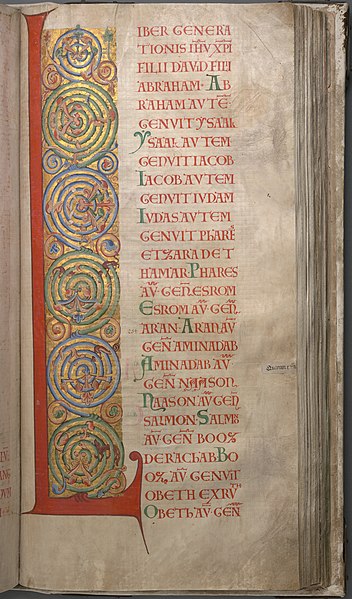 LIBER GENERA
TIONIS IHV XPI
FILII DAVID FILII
ABRAHAM · AB
RAHAM AUTE
GENVIT YSAAK
YSAAK AUTEM
GENVIT IACOB
IACOB AUTEM
GENVIT IVDAM
IVDAS AUTEM
GENVIT PHARE
ET ZARA DE T
HAMAR · PHARES
AU GEN ESROM
ESROM AU GEN
ARAN · ARAN AU
GEN AMINADAB
AMINADAB AU
GEN NAASON.
NAASON AU GEN
SALMON · SALMO
AU GEN BOOZ
DE RACHAB · BO
OZ, AU GENVIT
OBETH EX RU
OBETH AU GEN